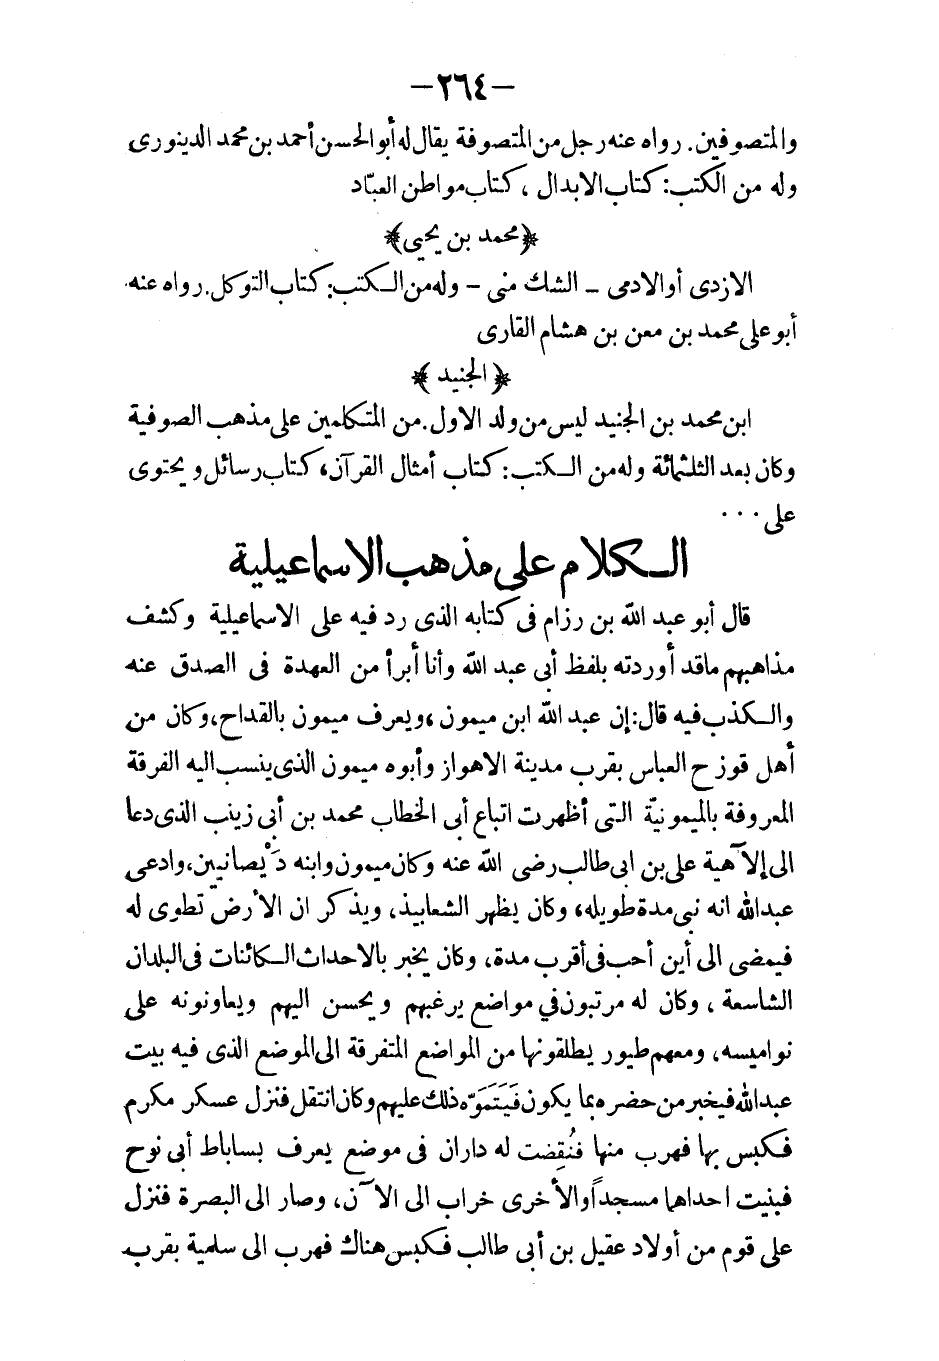 -٢٦٤-
والمتصوفين. رواه عنه رجل من المتصوفة يقال له أبو الحسن أحمد بن محمد الدينورى
وله من الكتب: كتاب الابدال ، كتاب مواطن العبّاد
﴿محمد بن يحيى﴾
الازدى أو الادمى - الشك منى - وله من الكتب: كتاب التوكل. رواه عنه
أبو على محمد بن معن بن هشام القارى
﴿الجنيد﴾
ابن محمد بن الجنيد ليس من ولد الاول. من المتكلمين على مذهب الصوفية
وكان بعد الثلثمائة وله من الكتب: كتاب أمثال القرآن، كتاب رسائل ويحتوى
على ...
الكلام على مذهب الاسماعيلية
قال أبو عبد الله بن رزام فى كتابه الذى رد فيه على الاسماعيلية وكشف
مذاهبهم ماقد أوردته بلفظ أبى عبد الله وأنا أبرأ من العهدة فى الصدق عنه
والكذب فيه قال: إن عبد الله ابن ميمون ، ويعرف ميمون بالقداح، وكان من
أهل قوزح العباس بقرب مدينة الاهواز وأبوه ميمون الذى ينسب اليه الفرقة
المعروفة بالميمونيّة التى أظهرت اتباع أبى الخطاب محمد بن أبى زينب الذى دعا
الى إلآهية على بن ابى طالب رضى الله عنه وكان ميمون وابنه دَيْصانيين، وادعى
عبدالله انه نبى مدة طويله، وكان يظهر الشعابيذ، ويذكر ان الأرض تطوى له
فيمضى الى أين أحب فى أقرب مدة، وكان يخبر بالاحداث الكائنات فى البلدان
الشاسعة ، وكان له مرتبون في مواضع يرغبهم ويحسن اليهم ويعاونونه على
نواميسه، ومعهم طيور يطلقونها من المواضع المتفرقة الى الموضع الذى فيه بيت
عبدالله فيخبر من حضره بما يكون فَيَتَمَوّه ذلك عليهم وكان انتقل فنزل عسكر مكرم
فكبس بها فهرب منها فنُقِضت له داران فى موضع يعرف بساباط أبى نوح
فبنيت احداهما مسجداً والأخرى خراب الى الآن، وصار الى البصرة فنزل
على قوم من أولاد عقيل بن أبى طالب فكبس هناك فهرب الى سلمية بقرب